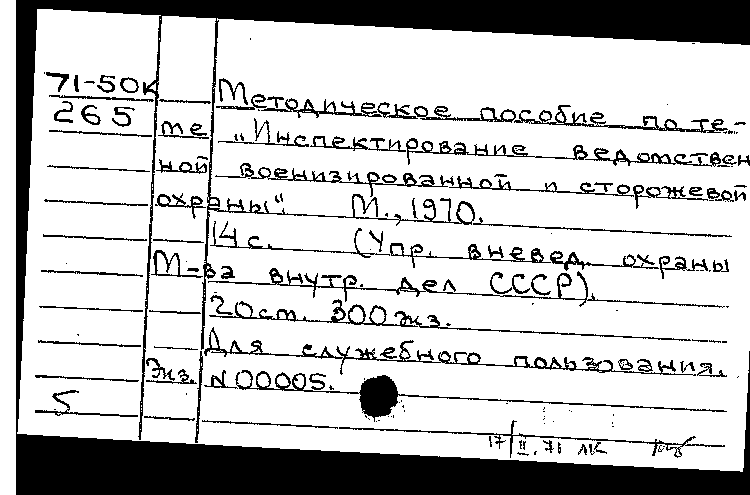 71-50К
265
Методическое пособие по те-
ме „Инспектирование ведомствен
ной военизированной и сторожевой
охраны". М., 1970.
14 с. (Упр. вневед. охраны
М-ва внутр. дел СССР).
20 см. 300 экз.
Для служебного пользования.
Экз. N 00005.
5
17/II.71 ЛК